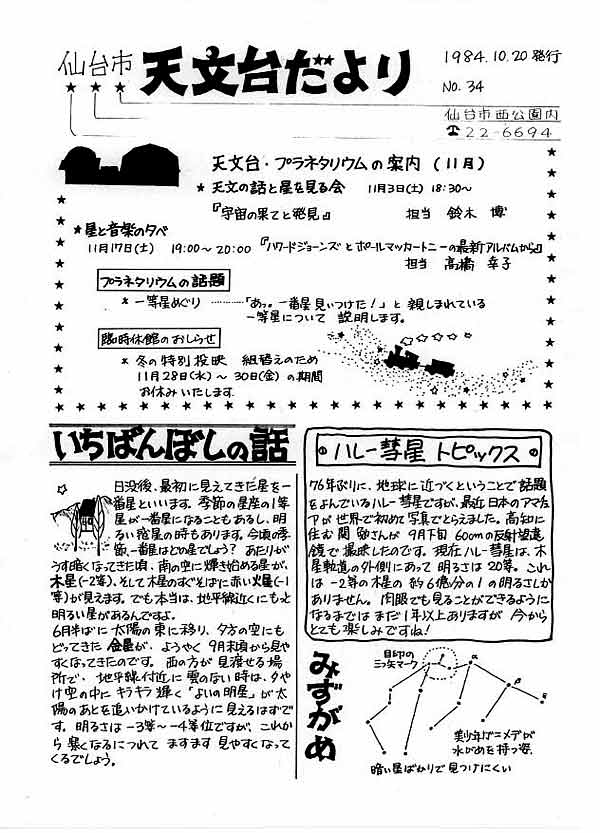 仙台市 天文台だより
1984.10.20 発行
No. 34
仙台市西公園内
☎22-6694
天文台・プラネタリウムの案内 (11月)
★ 天文の話と星を見る会 11月3日(土) 18:30～
『宇宙の果てと発見』 担当 鈴木 博
★星と音楽の夕べ
11月17日(土) 19:00～20:00 『ハワードジョーンズとポールマッカートニーの最新アルバムから』
担当 高橋 幸子
プラネタリウムの話題
★ 一等星めぐり ………「あっ。一番星見いつけた！」と 親しまれている
一等星について 説明します。
臨時休館のおしらせ
★ 冬の特別投映 組替えのため
11月28日(水)～30日(金) の期間
お休みいたします.
いちばんぼしの話
日没後、最初に見えてきた星を一
番星といいます。季節の星座の1等
星が一番星になることもあるし、明
るい惑星の時もあります。今頃の季
節、一番星はどの星でしょう？ あたりが
うす暗くなってきた頃、南の空に輝き始める星が、
木星(-2等)、そして木星のすぐそばに赤い火星(-1
等)が見えます。でも本当は、地平線近くにもっと
明るい星があるんですよ。
6月半ばに太陽の東に移り、夕方の空にも
どってきた 金星が、ようやく 9月末頃から見や
すくなってきたのです。西の方が 見渡せる場
所で、地平線付近に雲のない時は、夕や
け空の中に キラキラ輝く「よいの明星」が太
陽のあとを追いかけているように見えるはずで
す。明るさは-3等～-4等位ですが、これか
ら 寒くなるにつれて ますます 見やすくなって
くるでしょう。
ハレー彗星 トピックス
76年ぶりに、地球に近づくということで話題
をよんでいるハレー彗星ですが、最近日本のアマチュ
アが世界で初めて写真でとらえました。高知に
住む 関 勉さんが 9月下旬 60cmの反射望遠
鏡で撮映したのです。現在ハレー彗星は、木
星軌道の外側にあって 明るさは 20等。これ
は -2等の木星の 約6億分の1の明るさしか
ありません。肉眼でも見ることができるように
なるまでは まだ1年以上ありますが 今から
とても楽しみですね！
みずがめ
目印の
三ツ矢マーク
α
β
ε
美少年ガニメデが
水がめを持つ姿.
暗い星ばかりで見つけにくい